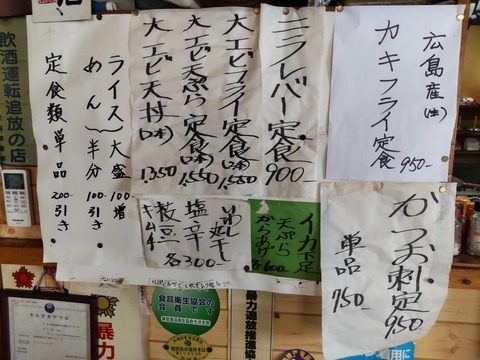 広島産(生)
カキフライ定食
950-
ニラレバー定食
900
大エビフライ定食(2本)
1,550
大エビ天ぷら定食(2本)
1,550
大エビ天丼(2本)
1,350
ライス 大盛 100増
めん 半分 100引き
定食類単品 200引き
飲酒運転追放の店
かつお刺定
950
単品
750-
イカ下足
天ぷら
からあげ
各600
いわし丸干し
塩辛
枝豆
キムチ
各300
食品衛生協会の
会員です
暴力追放推進協
暴力